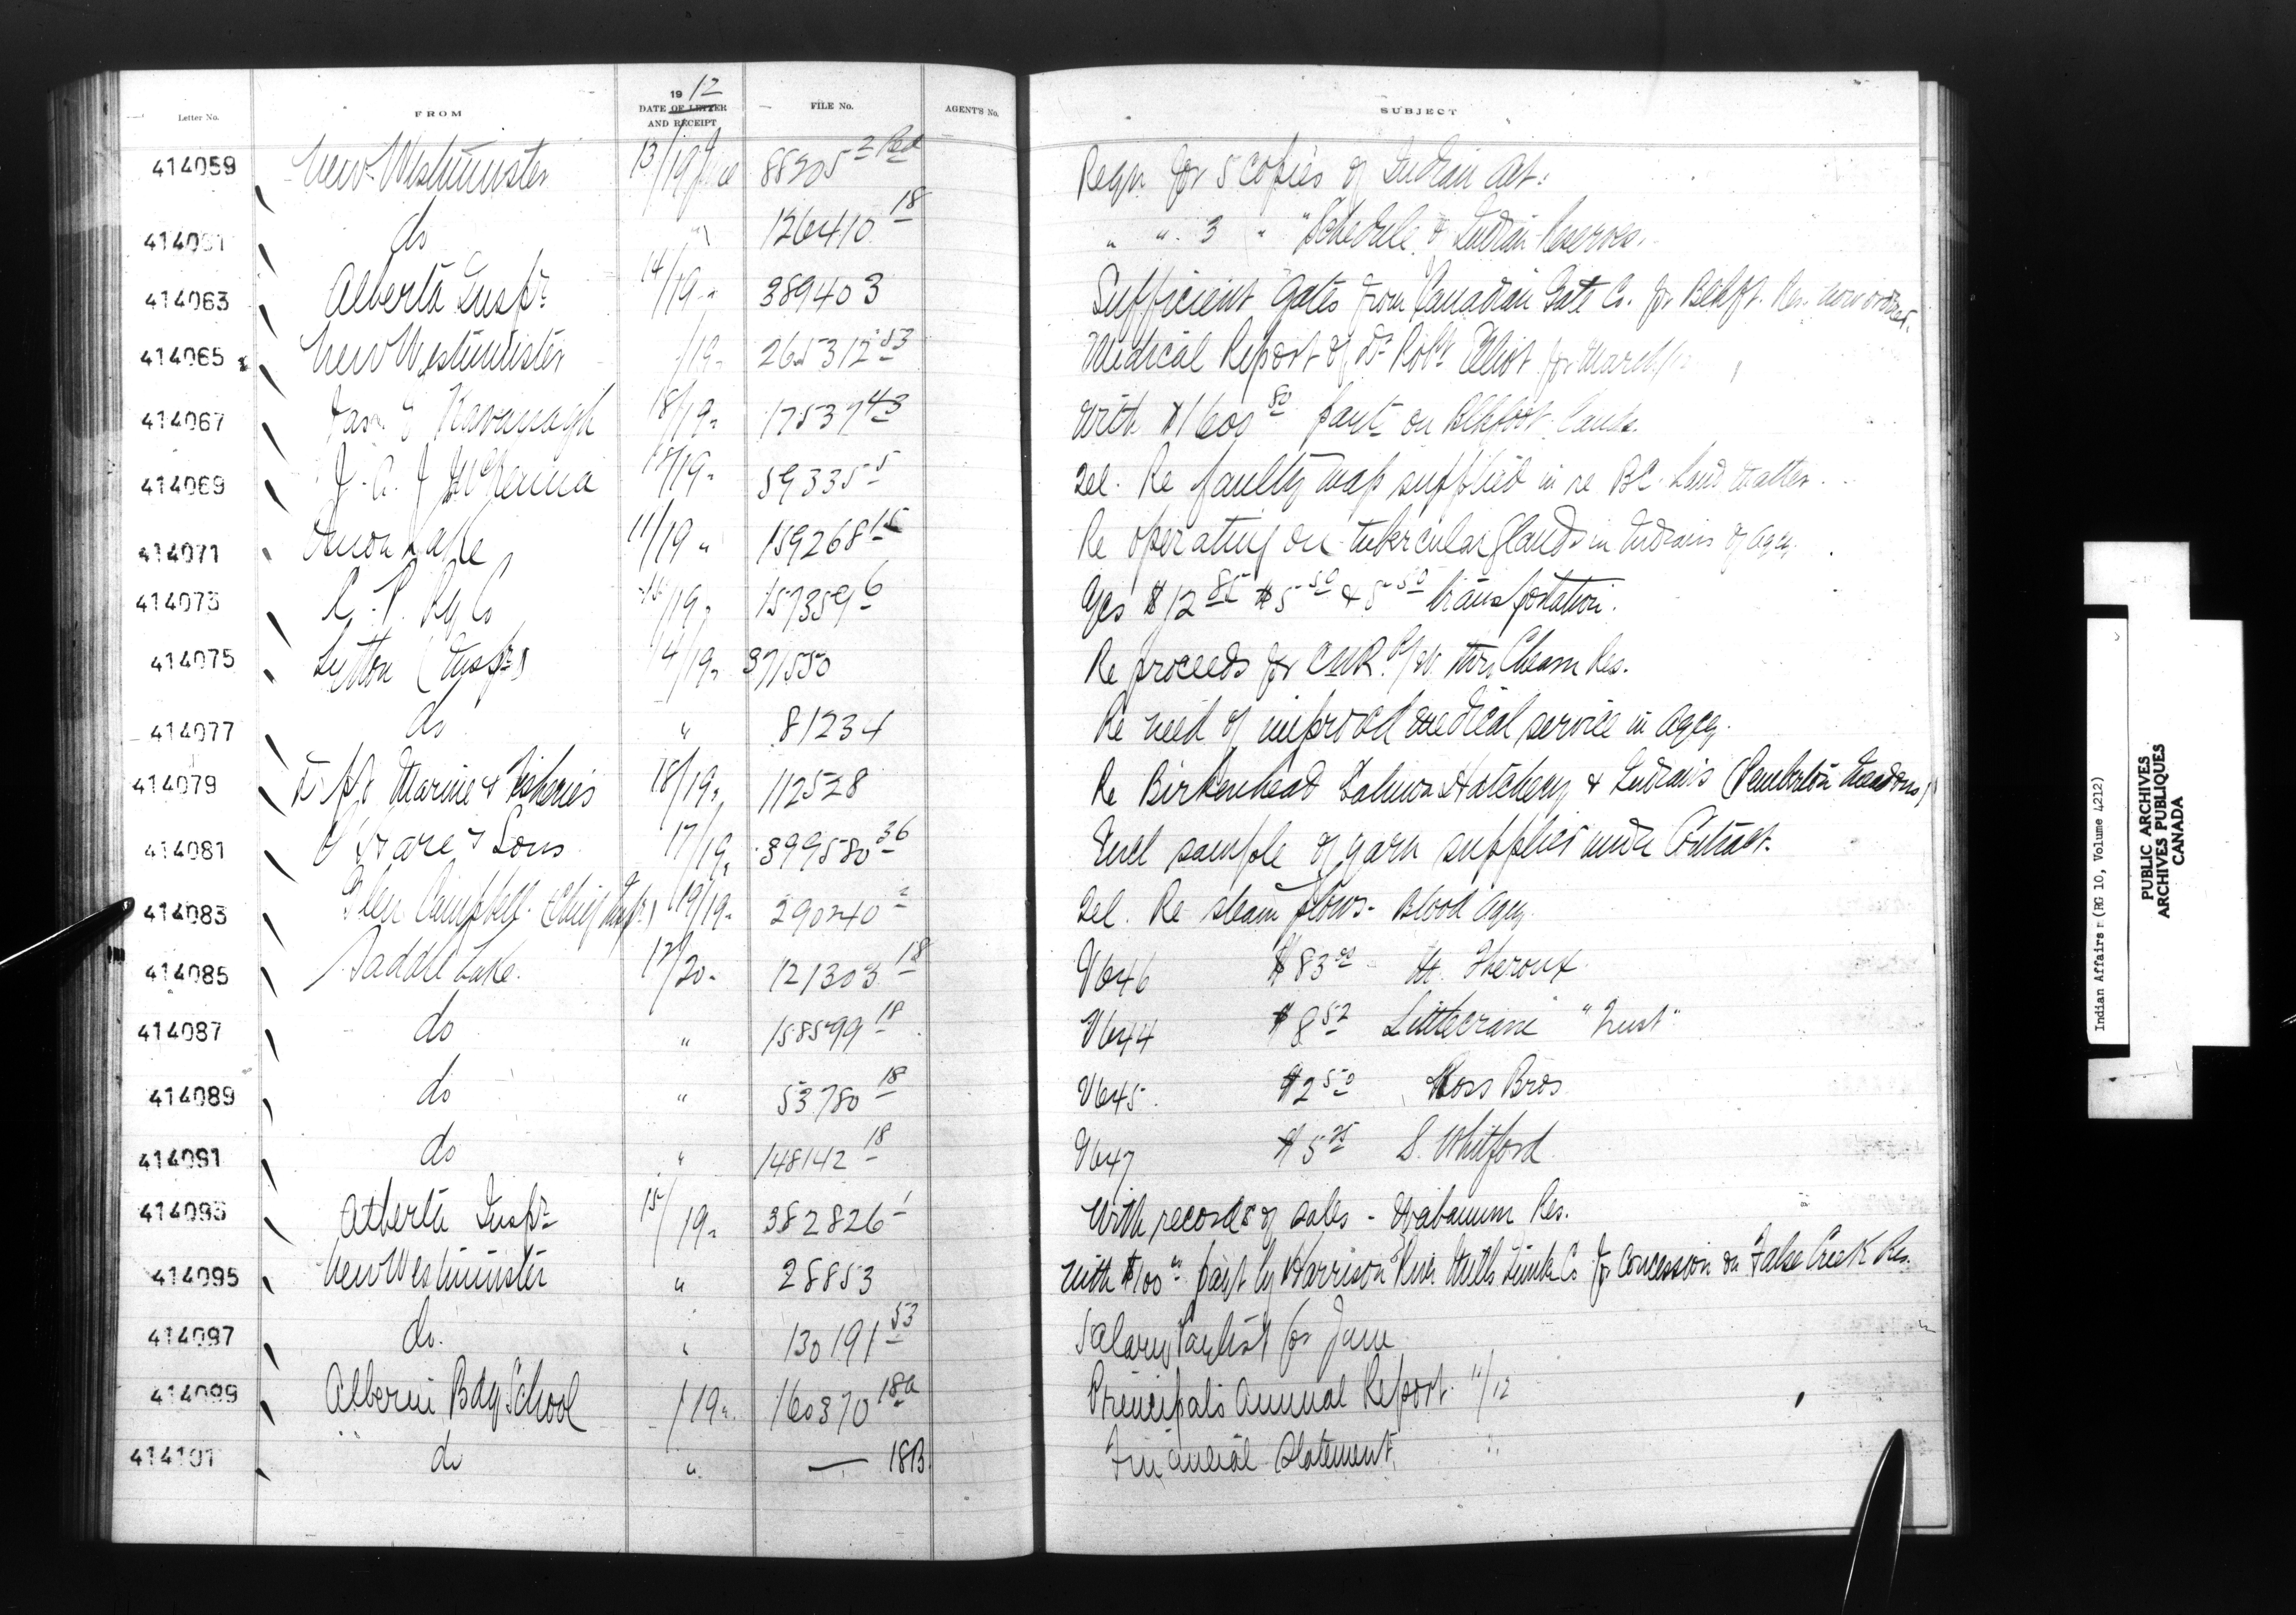 Letter No. FROM 1912 DATE OF LETTER AND RECEIPT FILE No. AGENT'S No. SUBJECT
414059 New Westminster 13/19 June 88305 2 Reqn for 5 copies of Indian Act.
414061 do " 126410 18 " " 3 " "Schedule of Indian Reserves.
414063 Alberta Inspr 14/19 " 389403 Sufficient Gates from Canadian Gate Co. for Blkft. Res. now
414065 New Westminster /19 " 265312 53 Medical Report of Dr Robt Elliot for March
414067 Kavanagh 18/19 " 17537 43 With $1600 80 paut on Blkfoot Lands.
414069 J. A. J McKenna 18/19 " 59335 5 Tel. Re faulty map supplied in re B.C. Land Matter.
414071 Lake 11/19 " 159268 15 Re operating on tubercular glands in Indians of agcy.
414073 C. P. Ry Co 15/19 " 157359 6 $12 85 $5 50 & 5 50 transportation.
414075 Lytton (Inspr) 14/19 " 371550 Re proceeds for CNR. R/W. thro Cheam Res.
414077 do " 81234 Re need of improved medical service in agcy.
414079 Marine & Fisheries 18/19 " 112528 Re Birkenhead Salmon Hatchery & Indians (Pemberton Meadows)
414081 & Sons 17/19 " 399580 36 Encl sample of yarn supplied under Contract.
414083 Glen Campbell (Chief Inspr.) 19/19 " 290240 2 Tel. Re steam plows - Blood Agcy
414085 Saddle Lake. 12/20 " 121303 18 V646 $83 00 H. Theroux
414087 do " 158599 18 V644 $8 52 Littlecrane "Trust"
414089 do " 53780 18 V645 $2 50 Ross Bros
414091 do " 148142 18 V647 $5 25 S. Whitford
414093 Alberta Inspr 15/19 " 382826 1 With records of sales - Wabamum Res.
414095 New Westminster " 28853 With $100 00 paut by Harrison River Mills Timber Co for concession on False Creek Res.
414097 do. " 130191 53 Salary Paylist for June
414099 Alberni Bdg School /19 " 160370 18a Principals Annual Report 11/12
414101 do " — 18B Financial Statement "
Indian Affairs (RG 10, Volume 4212)
PUBLIC ARCHIVES
ARCHIVES PUBLIQUES
CANADA